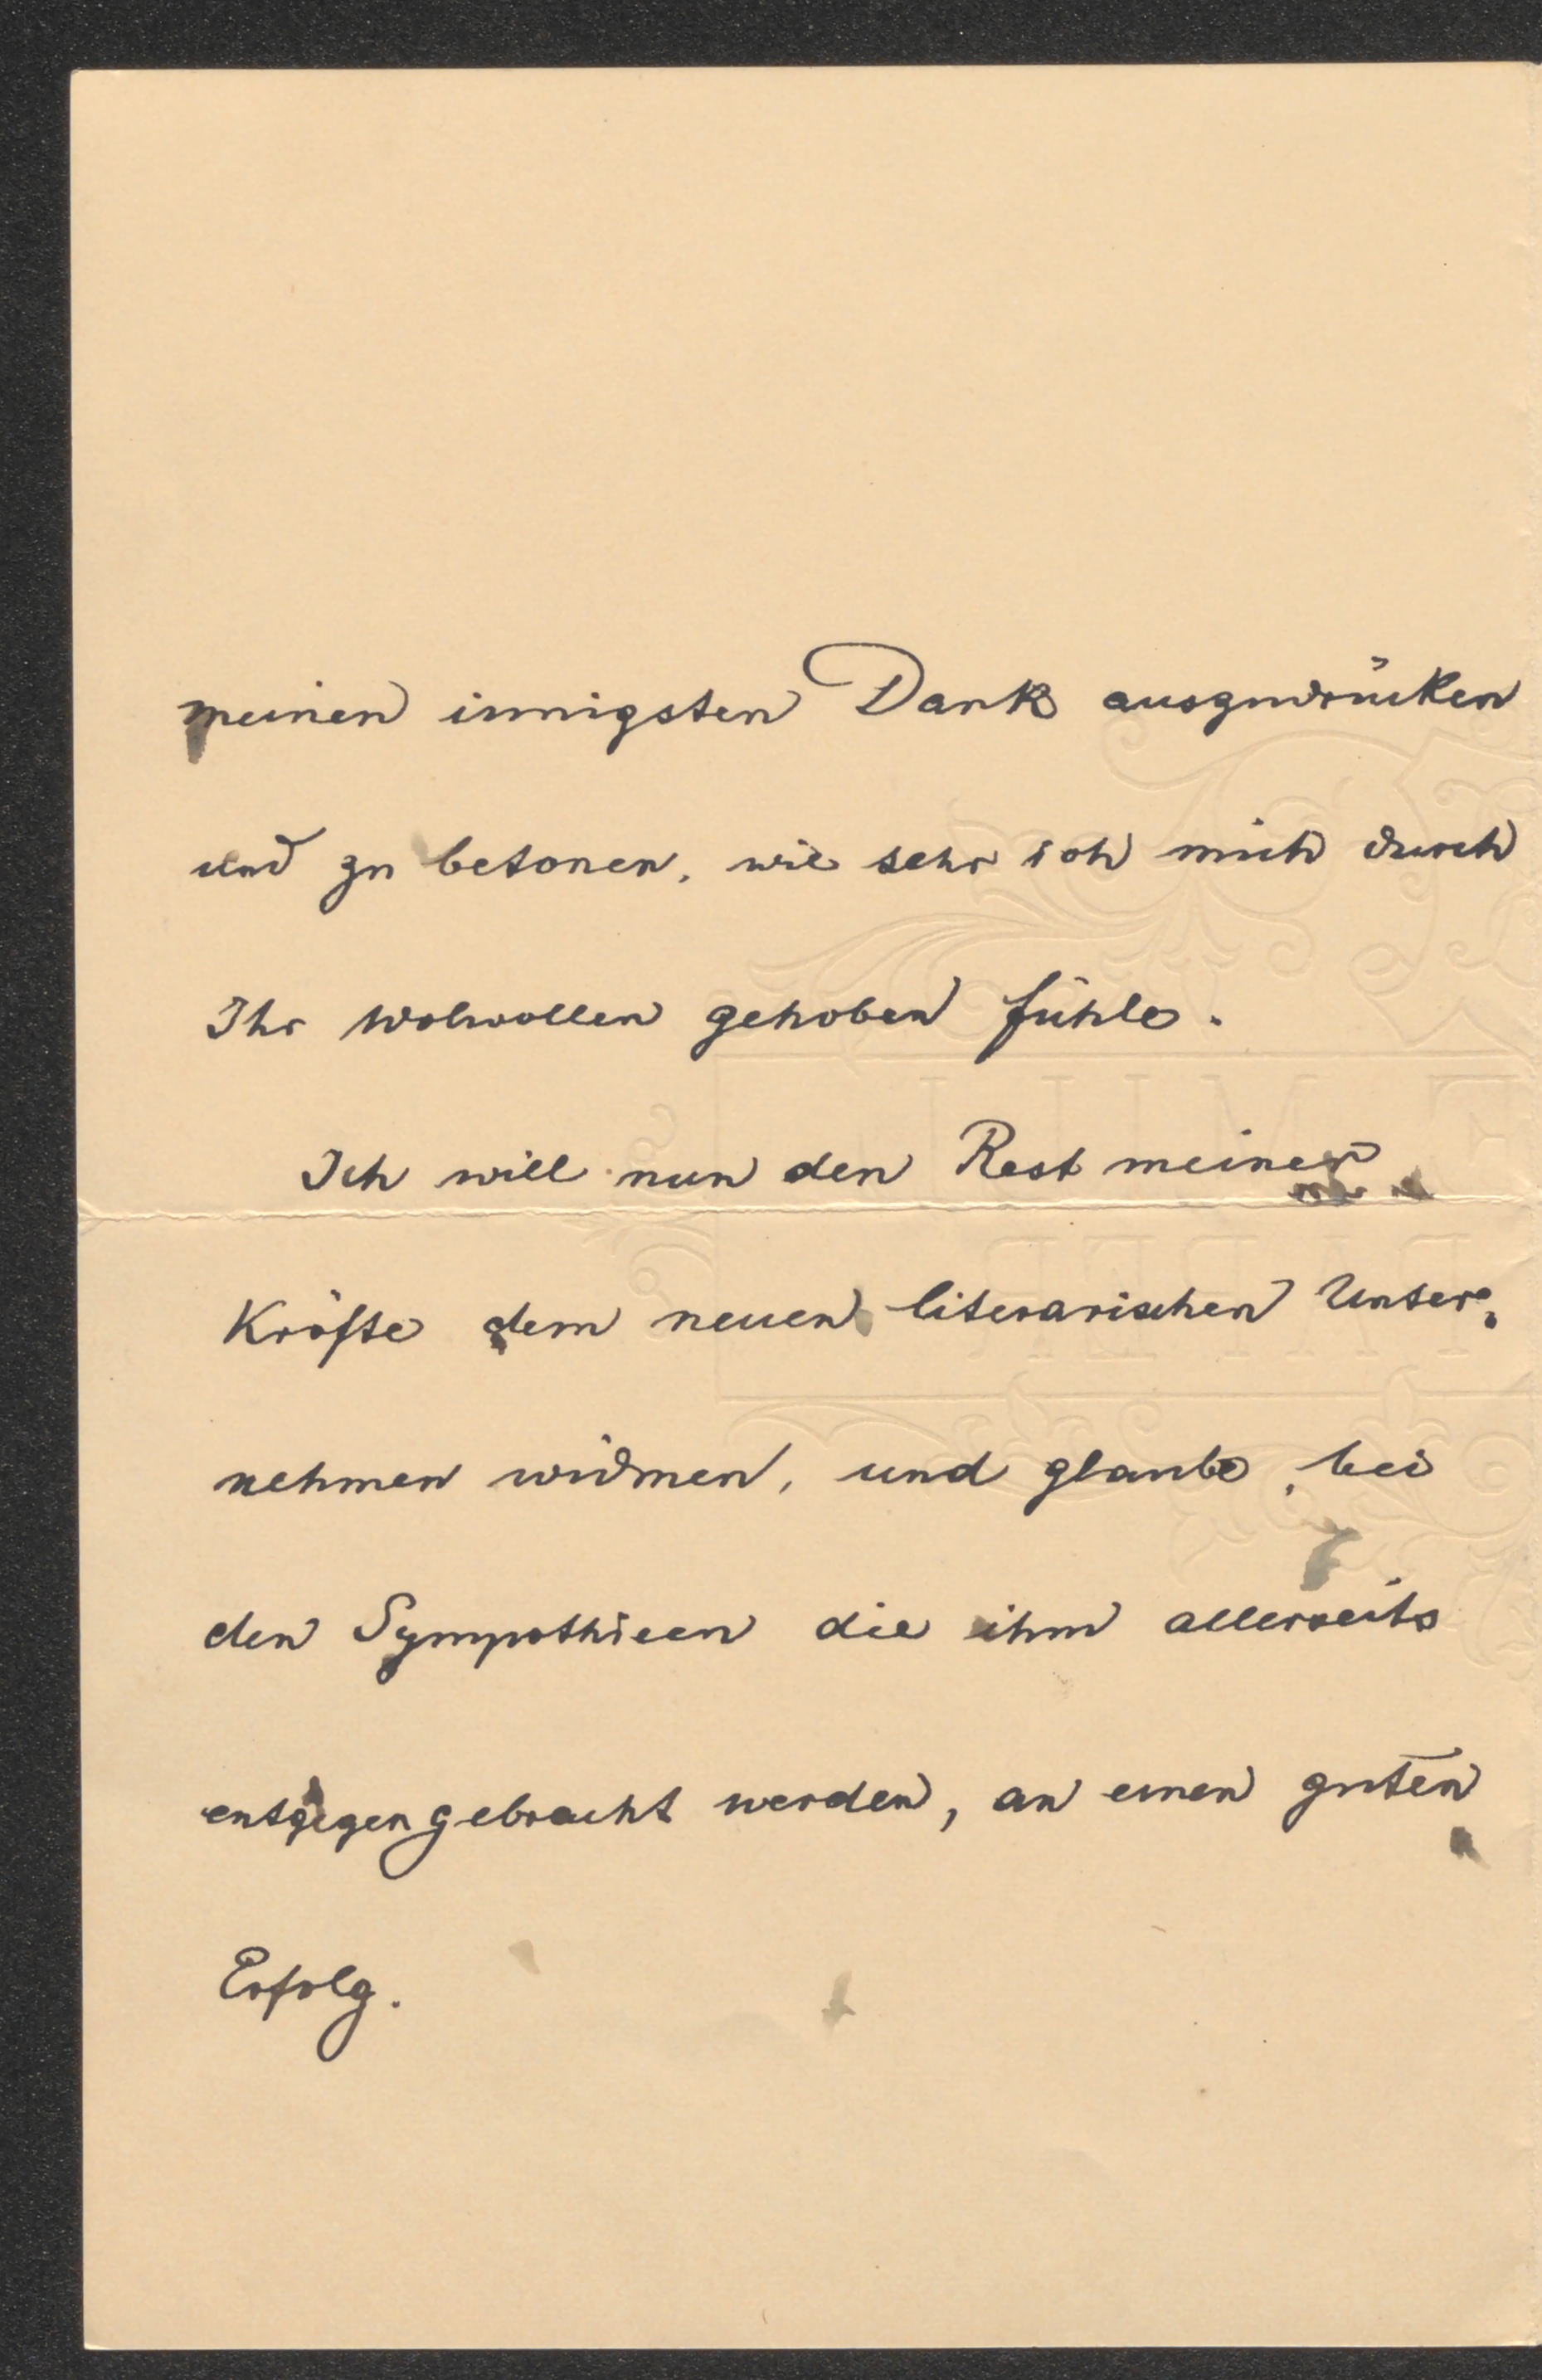 meinen innigsten Dank auszudrücken
und zu betonen, wie sehr ich mich durch
Ihr Wolwollen gehoben fühle.
Ich will nun den Rest meiner
Kräfte dem neuen literarischen Unter:
nehmen widmen, und glaube, bei
den Sympathieen die ihm allerseits
entgegengebracht werden, an einen guten
Erfolg.